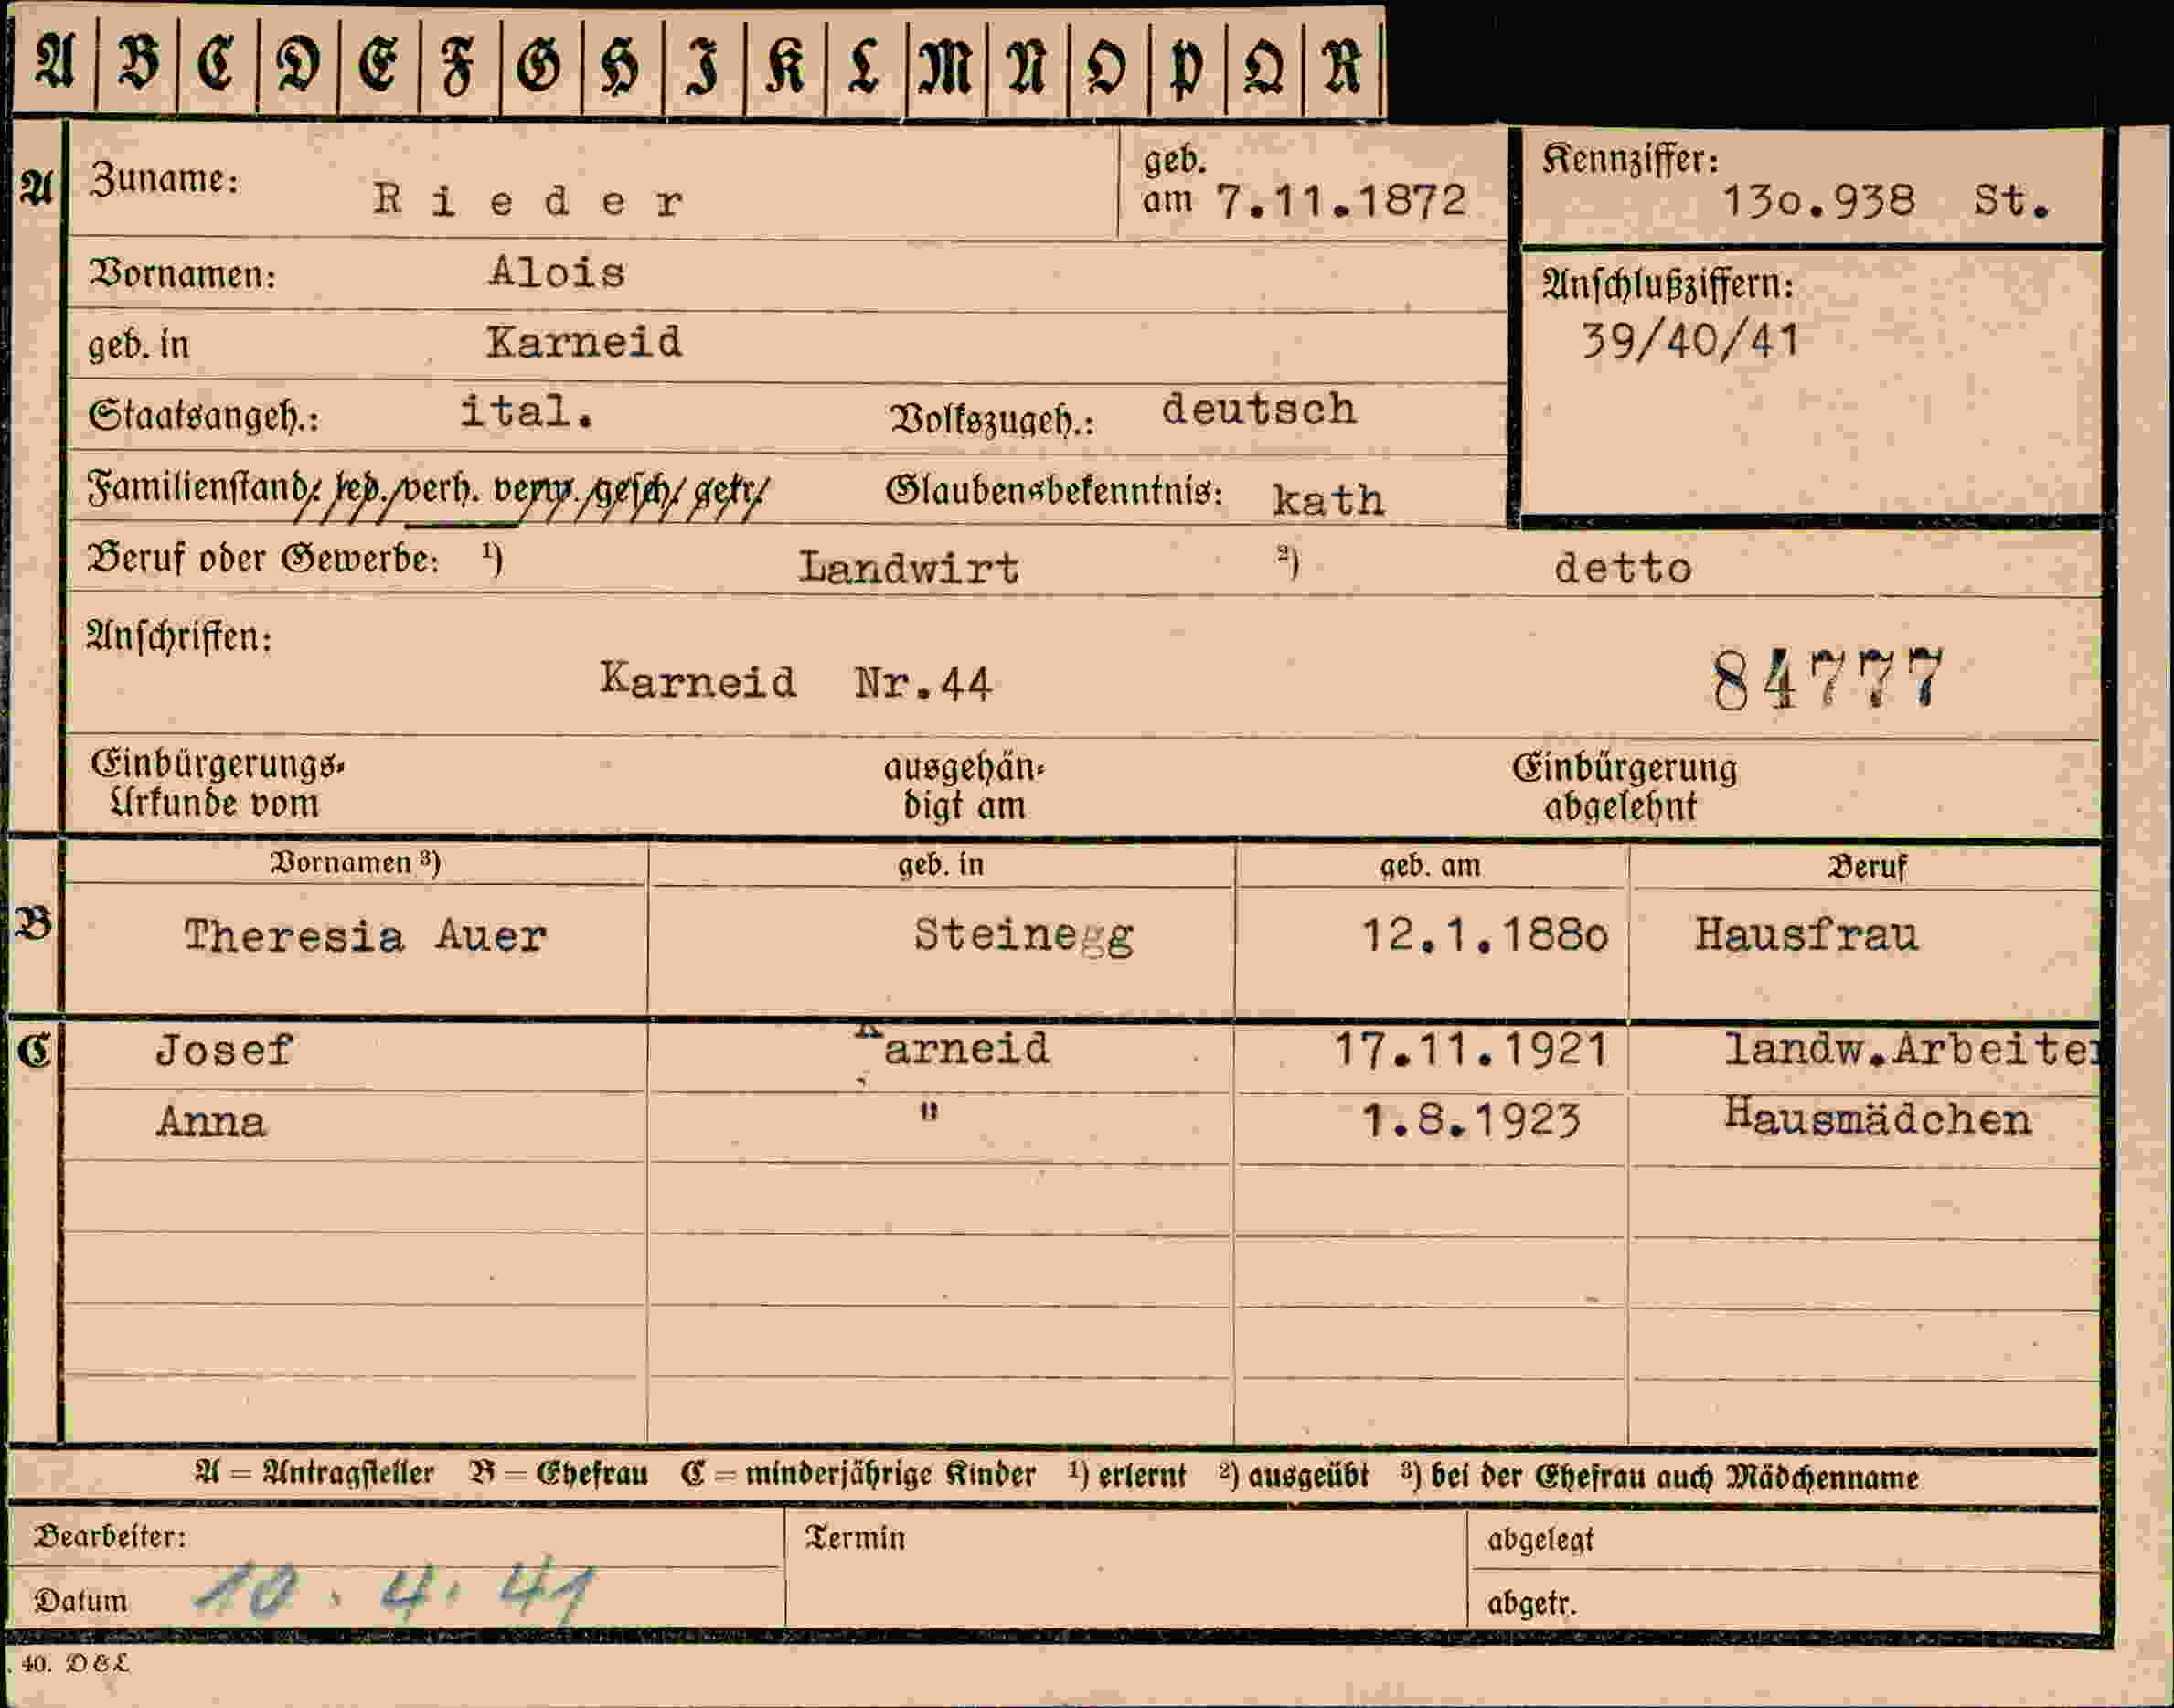 A B C D E F G H I K L M N O P Q R
A Zuname: Rieder geb. am 7.11.1872 Kennziffer: 130.938 St.
Vornamen: Alois Anschlußziffern:
geb. in Karneid 39/40/41
Staatsangeh.: ital. Volkszugeh.: deutsch
Familienstand: led. verh. verw. gesch. getr. Glaubensbekenntnis: kath
Beruf oder Gewerbe: 1) Landwirt 2) detto
Anschriften:
Karneid Nr.44 84777
Einbürgerungs- ausgehän- Einbürgerung
Urkunde vom digt am abgelehnt
Vornamen 3) geb. in geb. am Beruf
B Theresia Auer Steinegg 12.1.1880 Hausfrau
C Josef Karneid 17.11.1921 landw.Arbeiter
Anna " 1.8.1923 Hausmädchen
A = Antragsteller B = Ehefrau C = minderjährige Kinder 1) erlernt 2) ausgeübt 3) bei der Ehefrau auch Mädchenname
Bearbeiter: Termin abgelegt
Datum 10.4.41 abgetr.
40. D & L